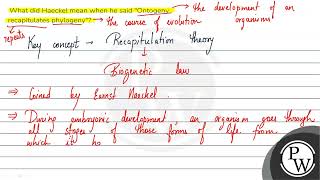 What did Haeckel mean when he said "Ontogeny → the development of an organism
recapitulates phylogeny"? → the course of evolution
repeats
Key concept → Recapitulation theory
Biogenetic law
⇒ Coined by Ernst Haeckel.
⇒ During embryonic development an organism goes through
all stages of those forms of life from
which it has
PW